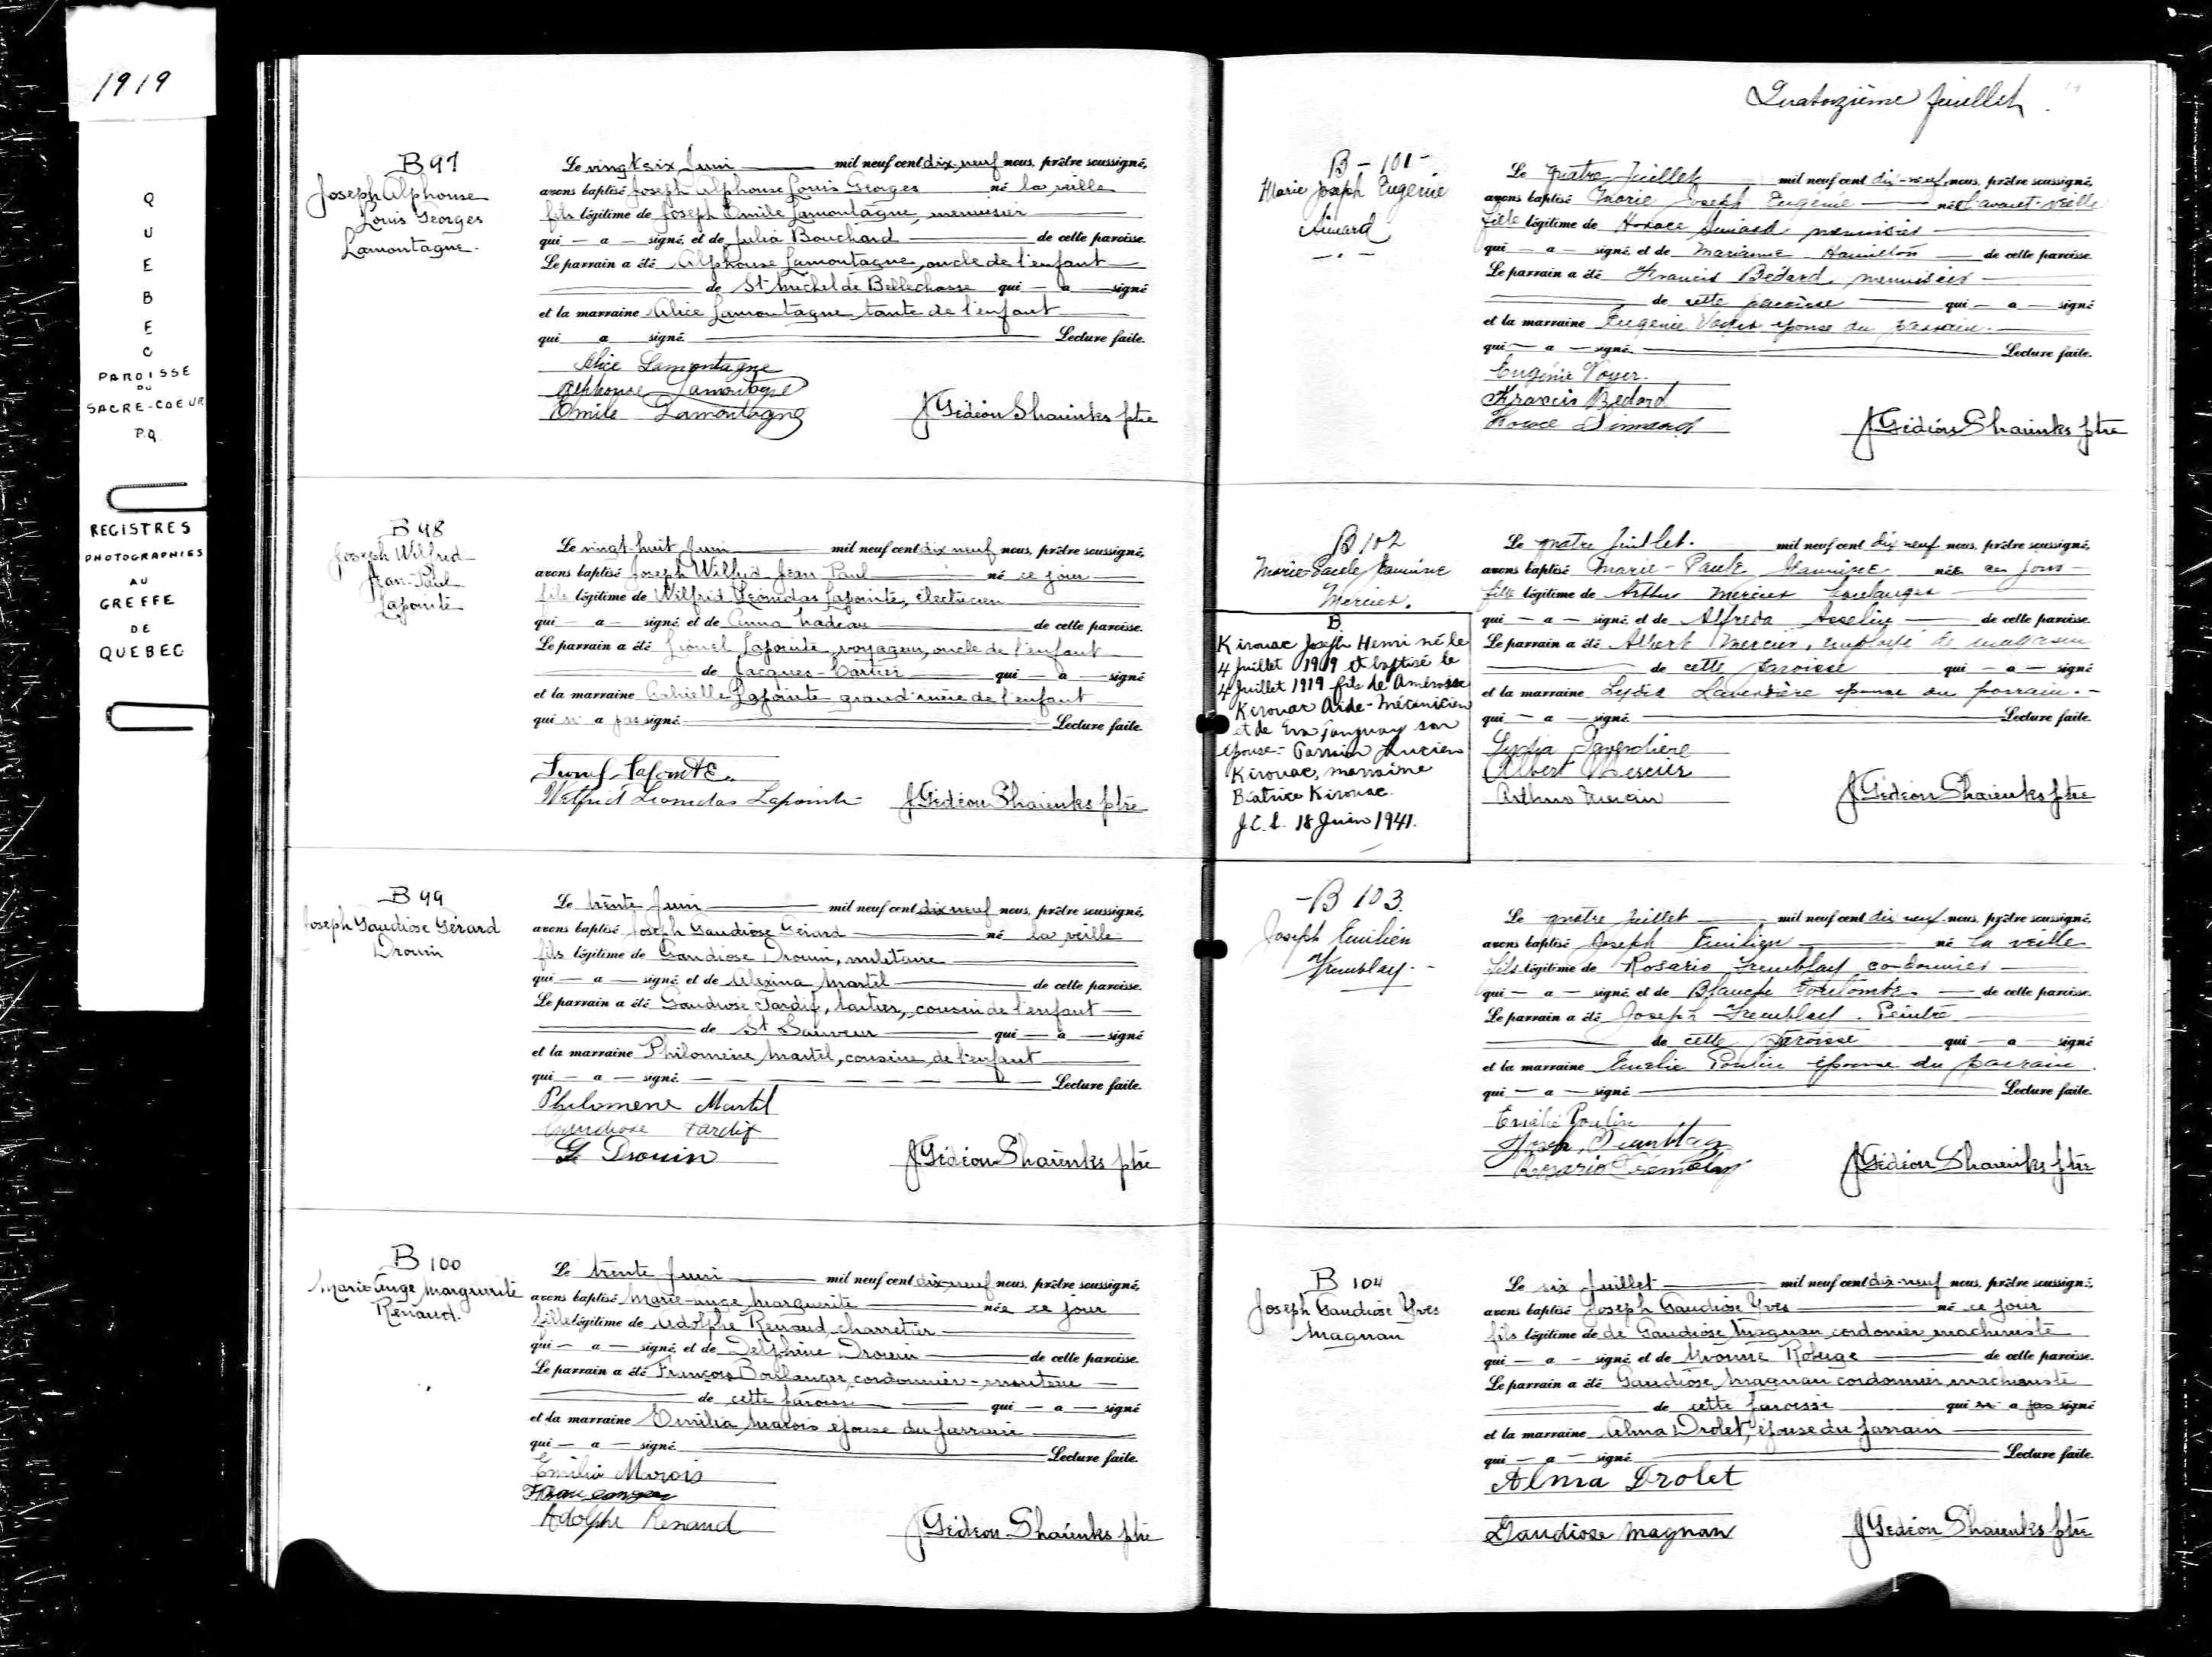 1919
QUEBEC
PAROISSE
DU
SACRE-COEUR
P.Q.
REGISTRES
PHOTOGRAPHIES
AU
GREFFE
DE
QUEBEC
B 97
Joseph Alphonse
Louis Georges
Lamontagne.
Le vingt six Juin mil neuf cent dix-neuf nous, prêtre soussigné,
avons baptisé Joseph Alphonse Louis Georges né la veille
fils légitime de Joseph Emile Lamontagne, menuisier
qui - a - signé, et de Julia Bouchard de cette paroisse.
Le parrain a été Alphonse Lamontagne, oncle de l'enfant
de St Michel de Bellechasse qui - a - signé
et la marraine Alice Lamontagne tante de l'enfant
qui a signé Lecture faite.
Alice Lamontagne
Alphonse Lamontagne
Emile Lamontagne
J Gédéon Shaienks ptre
B 98
Joseph Wilfrid
Jean-Paul
Lapointe
Le vingt-huit Juin mil neuf cent dix neuf nous, prêtre soussigné,
avons baptisé Joseph Wilfrid Jean Paul né ce jour
fils légitime de Wilfrid Léonidas Lapointe, électricien
qui - a - signé et de Anna Nadeau de cette paroisse.
Le parrain a été Lionel Lapointe, voyageur, oncle de l'enfant
de Jacques-Cartier qui - a - signé
et la marraine Lapointe grand'mère de l'enfant
qui n'a pas signé Lecture faite.
Lapointe
Wilfrid Leonidas Lapointe
J Gédéon Shaienks ptre
B 99
Joseph Gaudiose Gérard
Drouin
Le trente Juin mil neuf cent dix neuf nous, prêtre soussigné,
avons baptisé Joseph Gaudiose Gérard né la veille
fils légitime de Gaudiose Drouin, militaire
qui - a - signé et de Alexina Martel de cette paroisse.
Le parrain a été Gaudiose Tardif, laitier, cousin de l'enfant
de St Sauveur qui - a - signé
et la marraine Philomène Martel, cousine de l'enfant
qui - a - signé. Lecture faite.
Philomene Martel
Gaudiose Tardif
G Drouin
J Gédéon Shaienks ptre
B 100
Marie-Ange Marguerite
Renaud.
Le trente Juin mil neuf cent dix-neuf nous, prêtre soussigné,
avons baptisé Marie-Ange Marguerite née ce jour
fille légitime de Adolphe Renaud, charretier
qui - a - signé, et de Delphine Drouin de cette paroisse.
Le parrain a été François Boulanger, cordonnier-monteur
de cette paroisse qui - a - signé
et la marraine Emilia Marois épouse du parrain
qui - a - signé Lecture faite.
Emilia Marois
Adolphe Renaud
J Gédéon Shaienks ptre
Quatorzième feuillet
B - 101 -
Marie Joseph Eugénie
Simard
Le quatre Juillet mil neuf cent dix-neuf nous, prêtre soussigné,
avons baptisé Marie Joseph Eugénie née l'avant-veille
fille légitime de Horace Simard menuisier
qui - a - signé et de Marianne Hamilton de cette paroisse
Le parrain a été Francis Bédard, menuisier
de cette paroisse qui - a - signé
et la marraine Eugénie Voyer épouse du parrain.
qui - a - signé. Lecture faite.
Eugénie Voyer.
Francis Bédard
Horace Simard
J Gédéon Shaienks ptre
B 102
Marie-Paule Jeannine
Mercier.
B
Kirouac Joseph Henri né le
4 Juillet 1919 et baptisé le
4 Juillet 1919 fils de Ambroise
Kirouac Aide-Mécanicien
et de Eva Tanguay son
épouse - Parrain Lucien
Kirouac, marraine
Béatrice Kirouac.
J.C.L. 18 Juin 1941.
Le quatre Juillet. mil neuf cent dix neuf nous, prêtre soussigné,
avons baptisé Marie-Paule Jeannine née ce jour
fille légitime de Arthur Mercier boulanger
qui - a - signé et de Alfreda Asselin de cette paroisse.
Le parrain a été Albert Mercier, employé de magasin
de cette paroisse qui - a - signé
et la marraine Lydia Laverdière épouse du parrain. -
qui - a - signé Lecture faite.
Lydia Laverdiere
Albert Mercier
Arthur Mercier
J Gédéon Shaienks ptre
- B 103.
Joseph Emilien
Tremblay -
Le quatre Juillet mil neuf cent dix neuf nous, prêtre soussigné,
avons baptisé Joseph Emilien né la veille
fils légitime de Rosario Tremblay cordonnier
qui - a - signé, et de Blanche de cette paroisse.
Le parrain a été Joseph Tremblay. Peintre
de cette paroisse qui - a - signé
et la marraine Emelie Poulin épouse du parrain.
qui - a - signé Lecture faite.
Emélie Poulin
Joseph Tremblay
Rosario Tremblay
J Gédéon Shaienks ptre
B 104
Joseph Gaudiose Yves
Magnan
Le six Juillet mil neuf cent dix-neuf nous, prêtre soussigné,
avons baptisé Joseph Gaudiose Yves né ce jour
fils légitime de de Gaudiose Magnan cordonnier machiniste
qui - a - signé, et de Yvonne Roberge de cette paroisse.
Le parrain a été Gaudiose Magnan cordonnier machiniste
de cette paroisse qui n'a pas signé
et la marraine Alma Drolet, épouse du parrain
qui - a - signé Lecture faite.
Alma Drolet
Gaudiose Magnan
J Gédéon Shaienks ptre